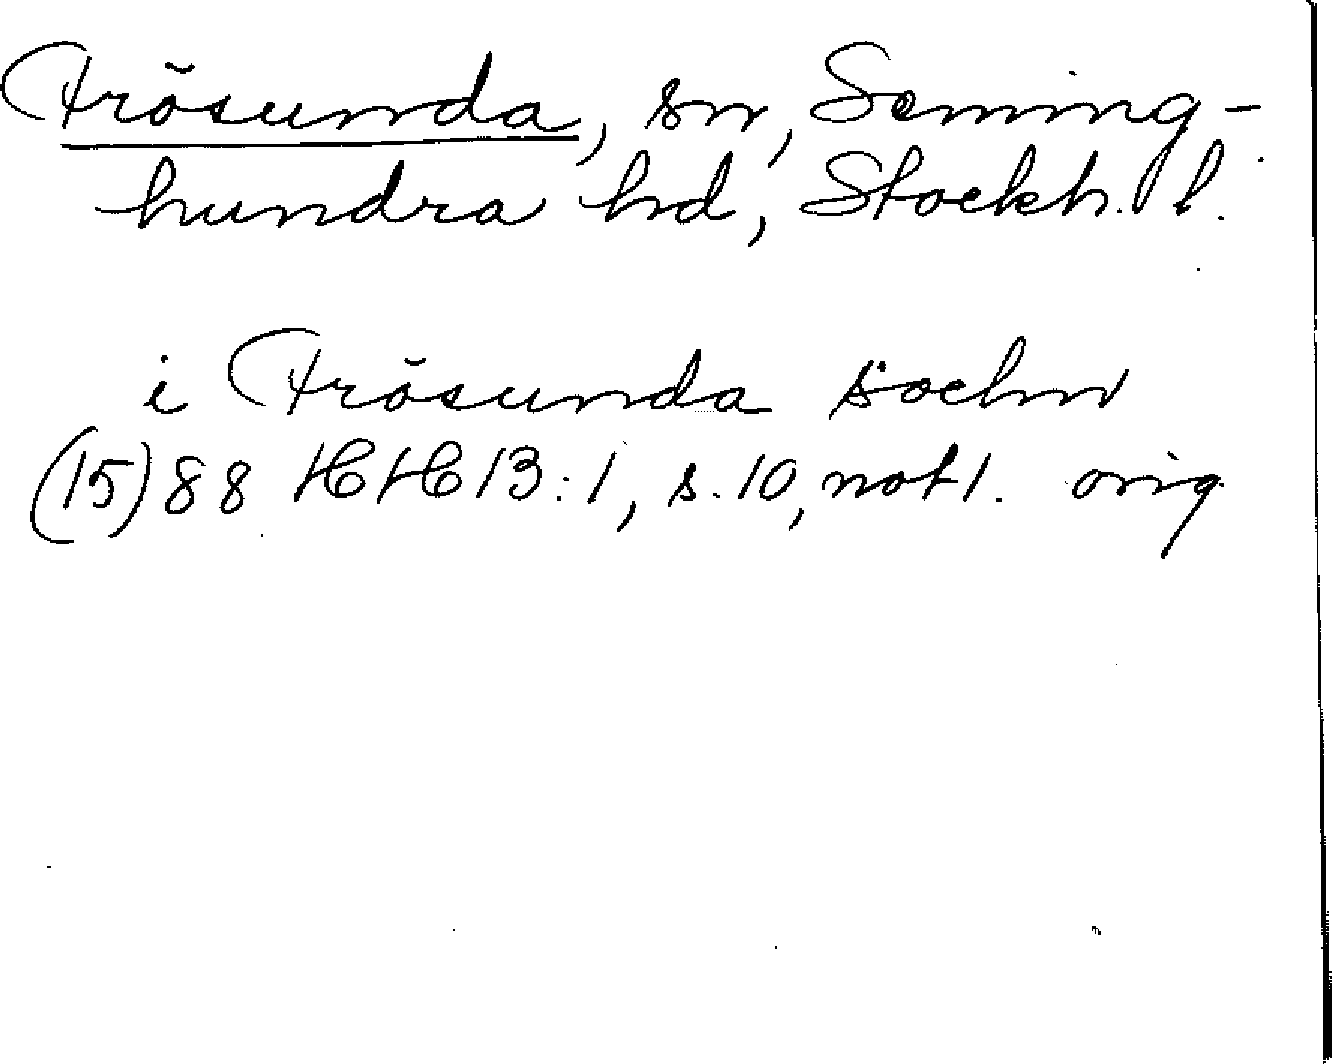 Frösunda, sn, Seming-
hundra hd, Stockh. l.
i Frösunda sochn
(15)88 HH 13:1, s. 10, not 1. orig